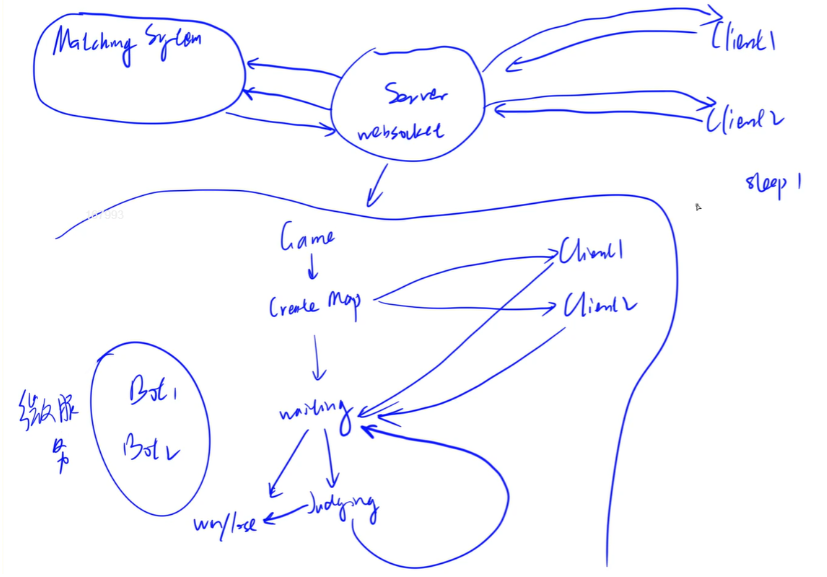 Matching System
Server
websocket
Client1
Client2
sleep 1
Game
Create Map
Client1
Client2
waiting
Judging
win/lose
微服
务
Bot1
Bot2